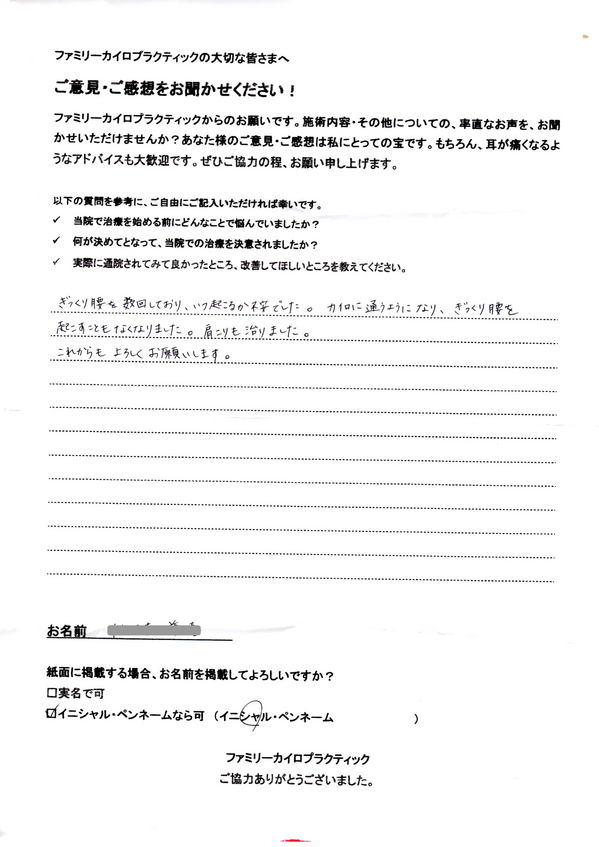 ファミリーカイロプラクティックの大切な皆さまへ
ご意見・ご感想をお聞かせください！
ファミリーカイロプラクティックからのお願いです。施術内容・その他についての、率直なお声を、お聞
かせいただけませんか？あなた様のご意見・ご感想は私にとっての宝です。もちろん、耳が痛くなるよ
うなアドバイスも大歓迎です。ぜひご協力の程、お願い申し上げます。
以下の質問を参考に、ご自由にご記入いただければ幸いです。
✓ 当院で治療を始める前にどんなことで悩んでいましたか？
✓ 何が決めてとなって、当院での治療を決意されましたか？
✓ 実際に通院されてみて良かったところ、改善してほしいところを教えてください。
ぎっくり腰を数回しており、いつ起こるか不安でした。カイロに通うようになり、ぎっくり腰を
起こすこともなくなりました。肩こりも治りました。
これからもよろしくお願いします。
お名前
紙面に掲載する場合、お名前を掲載してよろしいですか？
□実名で可
☑イニシャル・ペンネームなら可（イニシャル・ペンネーム　　　　　　）
ファミリーカイロプラクティック
ご協力ありがとうございました。